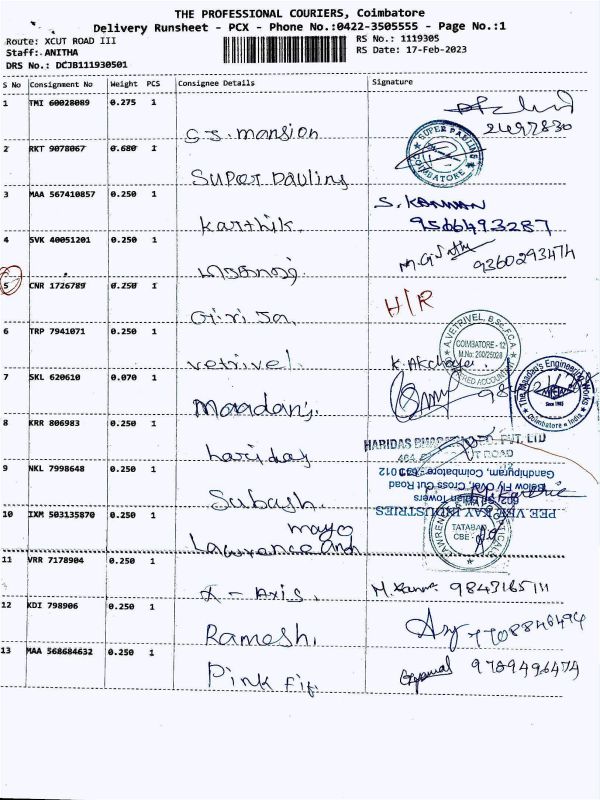 THE PROFESSIONAL COURIERS, Coimbatore
Delivery Runsheet - PCX - Phone No.:0422-3505555 - Page No.:1
Route: XCUT ROAD III
RS No.: 1119305
Staff: ANITHA
RS Date: 17-Feb-2023
DRS No.: DCJB111930501
S No Consignment No Weight PCS Consignee Details Signature
1 TMI 60028089 0.275 1
S.S. mansion
2 RKT 9078067 0.680 1
SUPER PAULING COIMBATORE
Super Pauling
3 MAA 567410857 0.250 1
S. KANNAN
Karthik.
9566493287
4 SVK 40051201 0.250 1
9360293474
5 CNR 1726789 0.250 1
H/R
Girija.
6 TRP 7941071 0.250 1
A. VETRIVEL, B.Sc., F.C.A.
COIMBATORE - 12
M.No: 200/25028
Vetrivel
K. Akchaya
7 SKL 620610 0.070 1
The Maadan's Engineering Works
Since 1983
Coimbatore - India
Maadan's.
8 KRR 806983 0.250 1
haridas
HARIDAS PVT. LTD
ROAD
9 NKL 7998648 0.250 1
Gandhipuram, Coimbatore - 641 012
Below Fly Over, Cross Cut Road
Towers
PEE VEE KAY INDUSTRIES
Subash.
10 IXM 503135870 0.250 1
mayo
Lawrence and
TATABAD
CBE
11 VRR 7178904 0.250 1
X - Axis.
9843165111
12 KDI 798906 0.250 1
Ramesh.
7708846494
13 MAA 568684632 0.250 1
Pink
9789496474